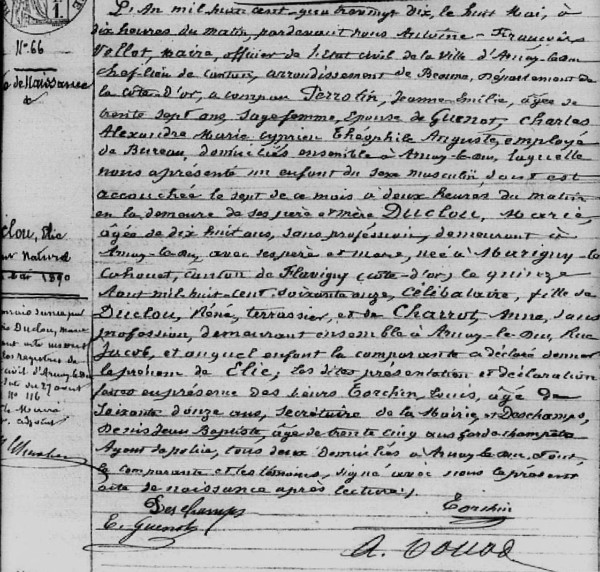 N° 66
de Naissance
L'An mil huit cent quatrevingt dix, le huit Mai, à
dix heures du matin, pardevant nous Antoine-François
maire, officier de l'état civil de la Ville d'Arnay-le-Duc
chef-lieu de canton, arrondissement de Beaune, département de
la Côte-d'or, a comparu Perrotin, Jeanne Emilie, âgée de
trente sept ans, sage femme, épouse de Guenot, Charles
Alexandre Marie Cyprien Théophile Auguste, employé
de Bureau, domiciliés ensemble à Arnay-le-Duc, laquelle
nous a présenté un enfant du sexe masculin, dont est
accouchée le sept de ce mois à deux heures du matin
en la demeure de ses père et mère Duclou, Marie,
âgée de dix huit ans, sans profession, demeurant à
Arnay-le-Duc, avec ses père et mère, née à Marigny-le
Cahouet, canton de Flavigny (côte-d'or) le quinze
août mil huit cent soixante onze, célibataire, fille de
Duclou, René, terrassier, et de Charrot, Anne, sans
profession, demeurant ensemble à Arnay-le-Duc, Rue
Jacob, et auquel enfant la comparante a déclaré donner
le prénom de Elie; Les dites présentation et déclaration
faites en présence des sieurs Torchin, Louis, âgé de
soixante douze ans, Secrétaire de la Mairie, et Deschamps,
Denis Jean Baptiste, âgé de trente cinq ans garde champêtre
Agent de police, tous deux domiciliés à Arnay-le-Duc. Dont,
la comparante et les témoins, signé avec nous le présent
acte de naissance après lecture.
clou, Elie
Naturel
Mai 1890
Duclou, Marie
acte
les registres de
civil d'Arnay-le-Duc
date du 27 août
N° 116
le Maire
adjoint
Deschamps
Torchin
E. Guenot